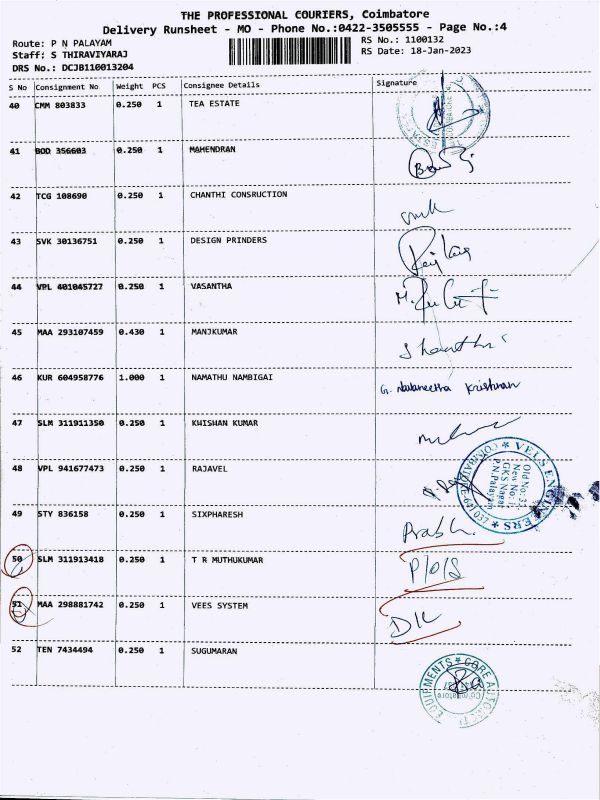 THE PROFESSIONAL COURIERS, Coimbatore
Delivery Runsheet - MO - Phone No.:0422-3505555 - Page No.:4
Route: P N PALAYAM RS No.: 1100132
Staff: S THIRAVIYARAJ RS Date: 18-Jan-2023
DRS No.: DCJB110013204
S No Consignment No Weight PCS Consignee Details Signature
40 CMM 803833 0.250 1 TEA ESTATE
41 BOD 356603 0.250 1 MAHENDRAN
42 TCG 108690 0.250 1 CHANTHI CONSRUCTION
43 SVK 30136751 0.250 1 DESIGN PRINDERS
44 VPL 401045727 0.250 1 VASANTHA
45 MAA 293107459 0.430 1 MANJKUMAR
46 KUR 604958776 1.000 1 NAMATHU NAMBIGAI G. Navaneetha Krishnan
47 SLM 311911350 0.250 1 KWISHAN KUMAR
48 VPL 941677473 0.250 1 RAJAVEL
VELS ENGINEERS
COIMBATORE
Old No:3
New No:
GKS Nagar
P.N.Palayam
49 STY 836158 0.250 1 SIXPHARESH Prabh
50 SLM 311913418 0.250 1 T R MUTHUKUMAR
51 MAA 298881742 0.250 1 VEES SYSTEM
52 TEN 7434494 0.250 1 SUGUMARAN
EQUIPMENTS * CORE
Coimbatore